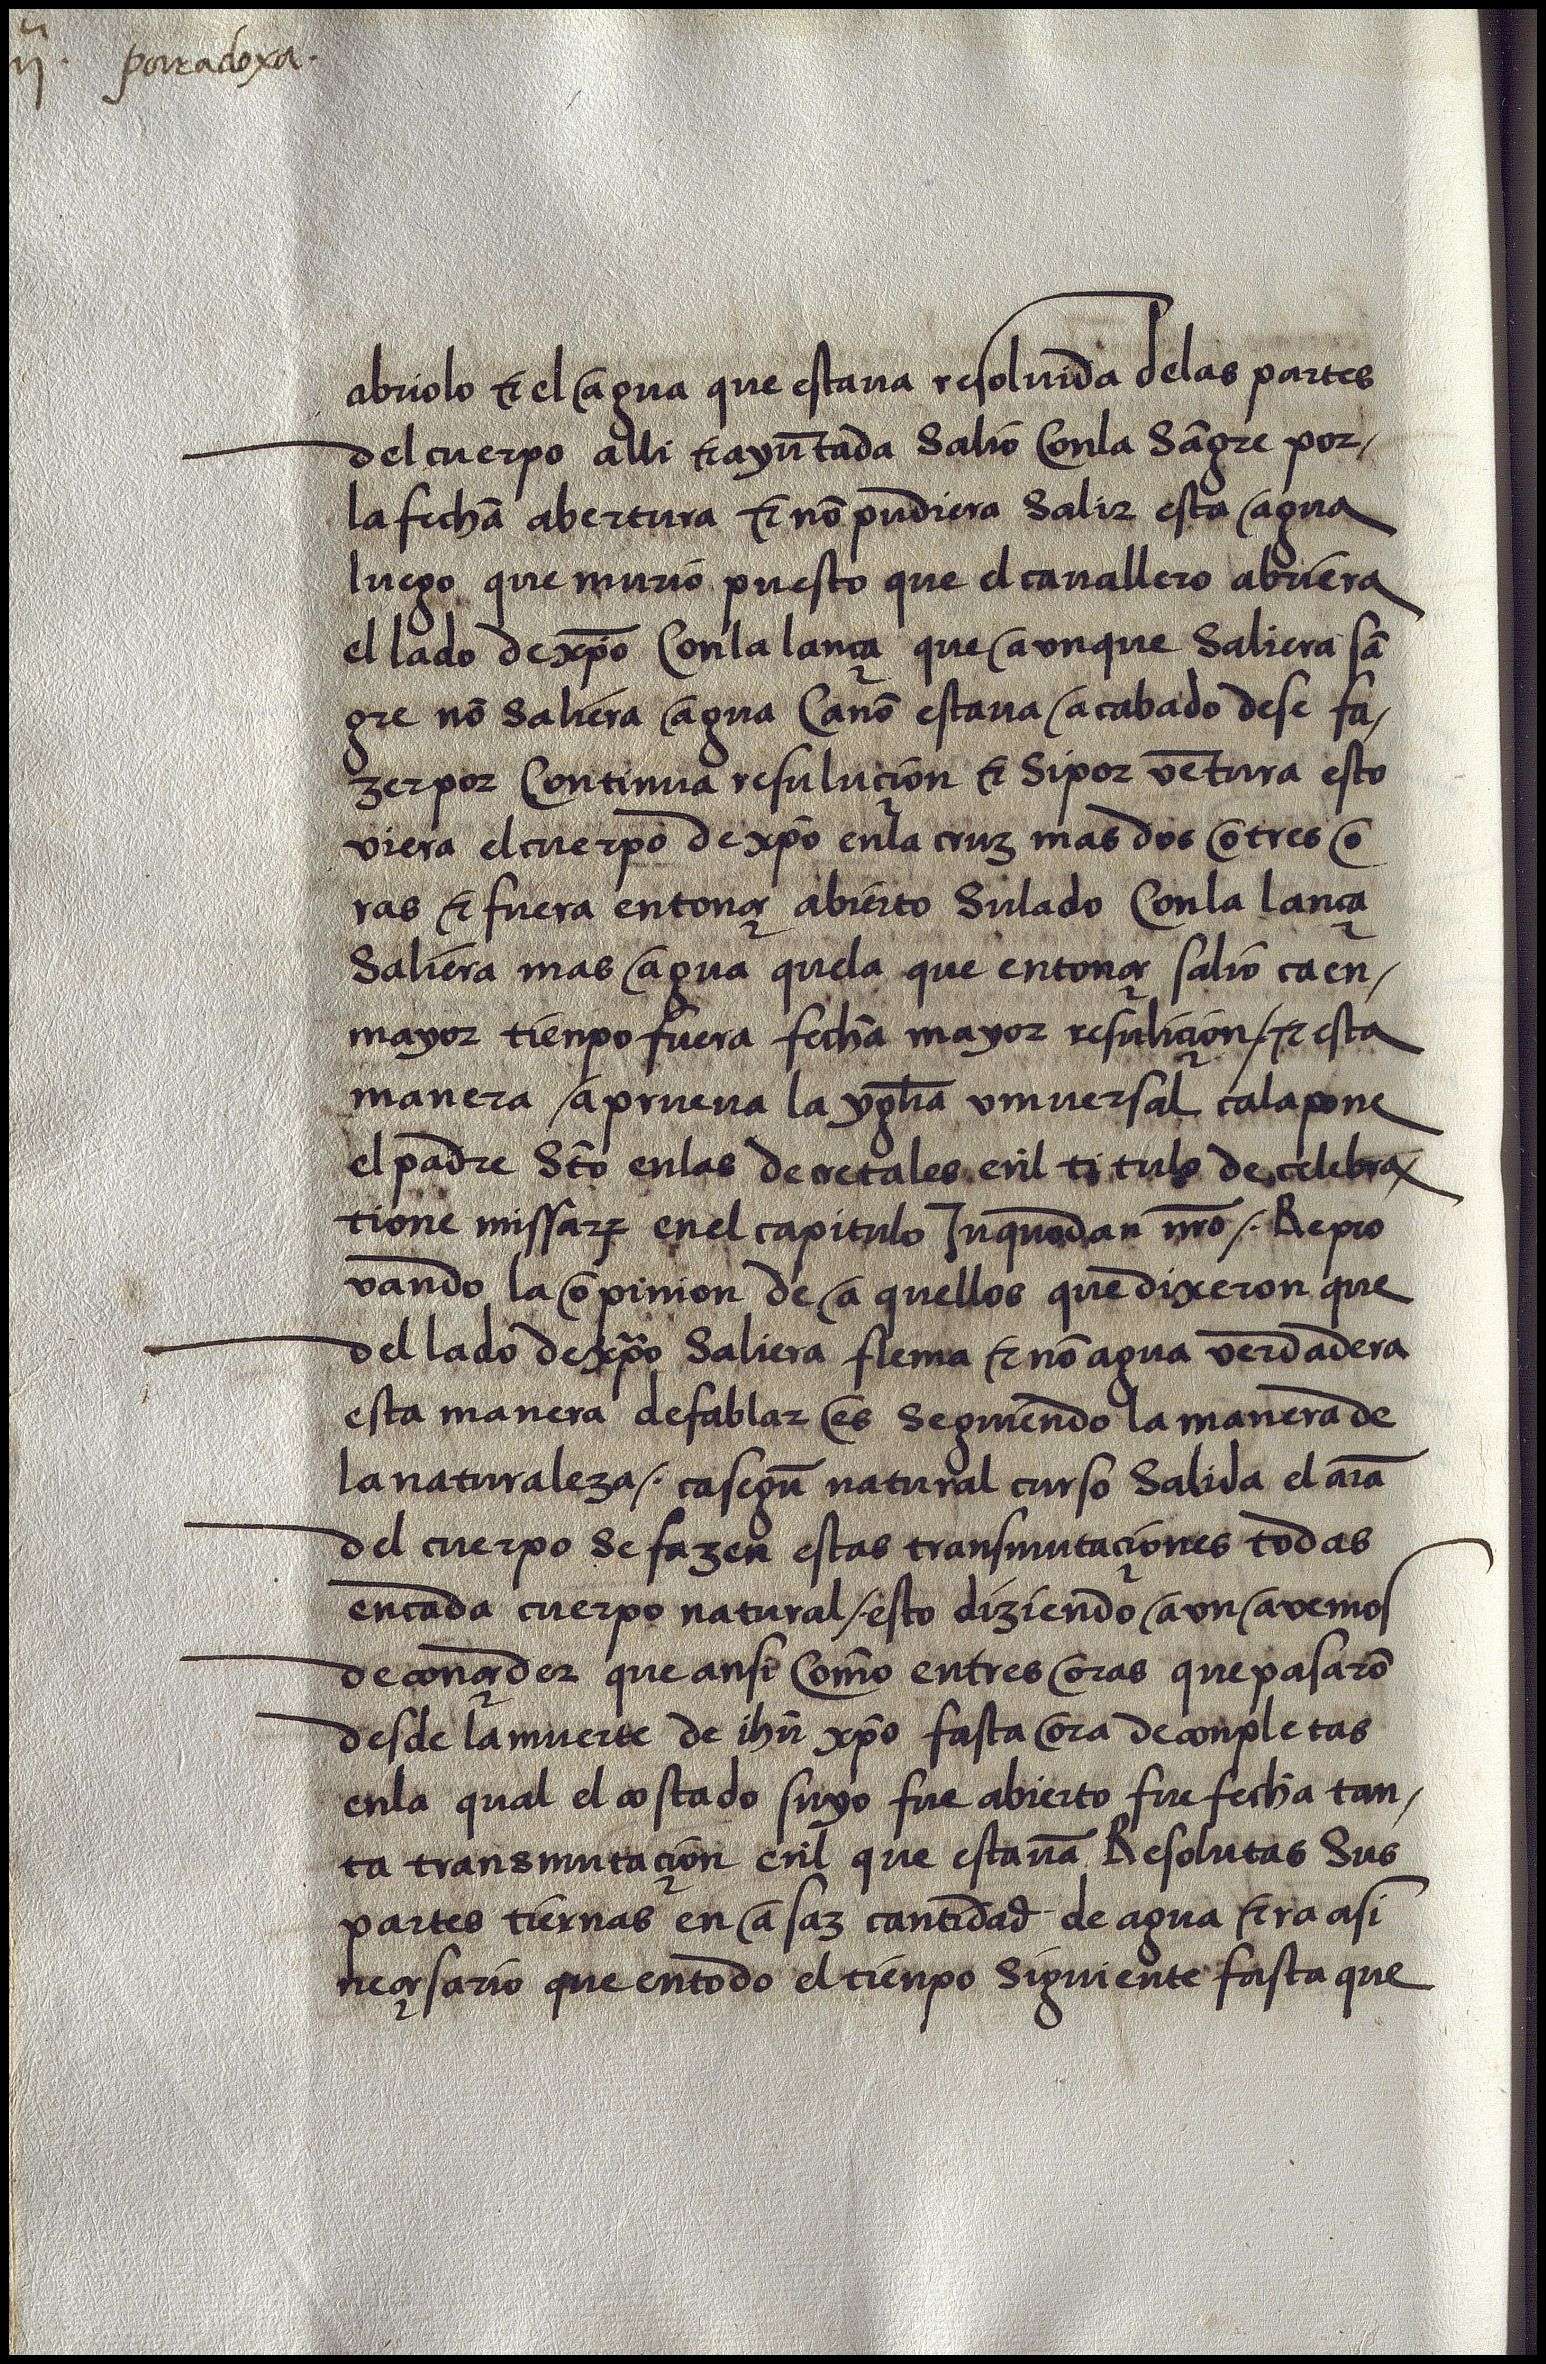 ij. parradoxa.
abriolo ⁊ el agua que estaua resoluida delas partes
del cuerpo alli ⁊ ayũtada Salio Conla Sãgre por/
la fecha abertura ⁊ nõ pudiera Salir esta agua
luego que murio puesto que el cauallero abriera
el lado de xp̃o Conla lança que avnque Saliera sã
gre nõ Saliera agua Ca nõ estaua acabado dese fa/
zer por Continua resuluçion ⁊ Si por vẽtura esto
viera el cuerpo de xp̃o enla cruz mas dos o tres o
ras ⁊ fuera entonçe abierto Su lado Conla lança
Saliera mas agua quela que entonçe salio ca en/
mayor tienpo fuera fecha mayor resuliçion/. ⁊ esta
manera aprueua la ygl̃ia vniuersal ca la pone
el padre Sc̃to enlas decretales enl titulo de celebra
tione missarꝝ en el capitulo In quodan nr̃o/. Repro
vando la opinion de aquellos que dixeron que
del lado de xp̃o Saliera flema ⁊ nõ agua verdadera
esta manera de fablar es Seguiendo la manera de
la naturaleza/. ca segũ natural curso Salida el aĩa
del cuerpo Se fazen estas transmutaçiones todas
en cada cuerpo natural/. esto diziendo avn avemos
de conçeder que ansi Como en tres oras que pasarõ
desde la muerte de ihũ xp̃o fasta ora de conpletas
enla qual el costado suyo fue abierto fue fecha tan/
ta transmutaçion enl que estauã Resolutas Sus
partes tiernas en asaz cantidad de agua ⁊ra asi
neçesario que en todo el tienpo Siguiente fasta que